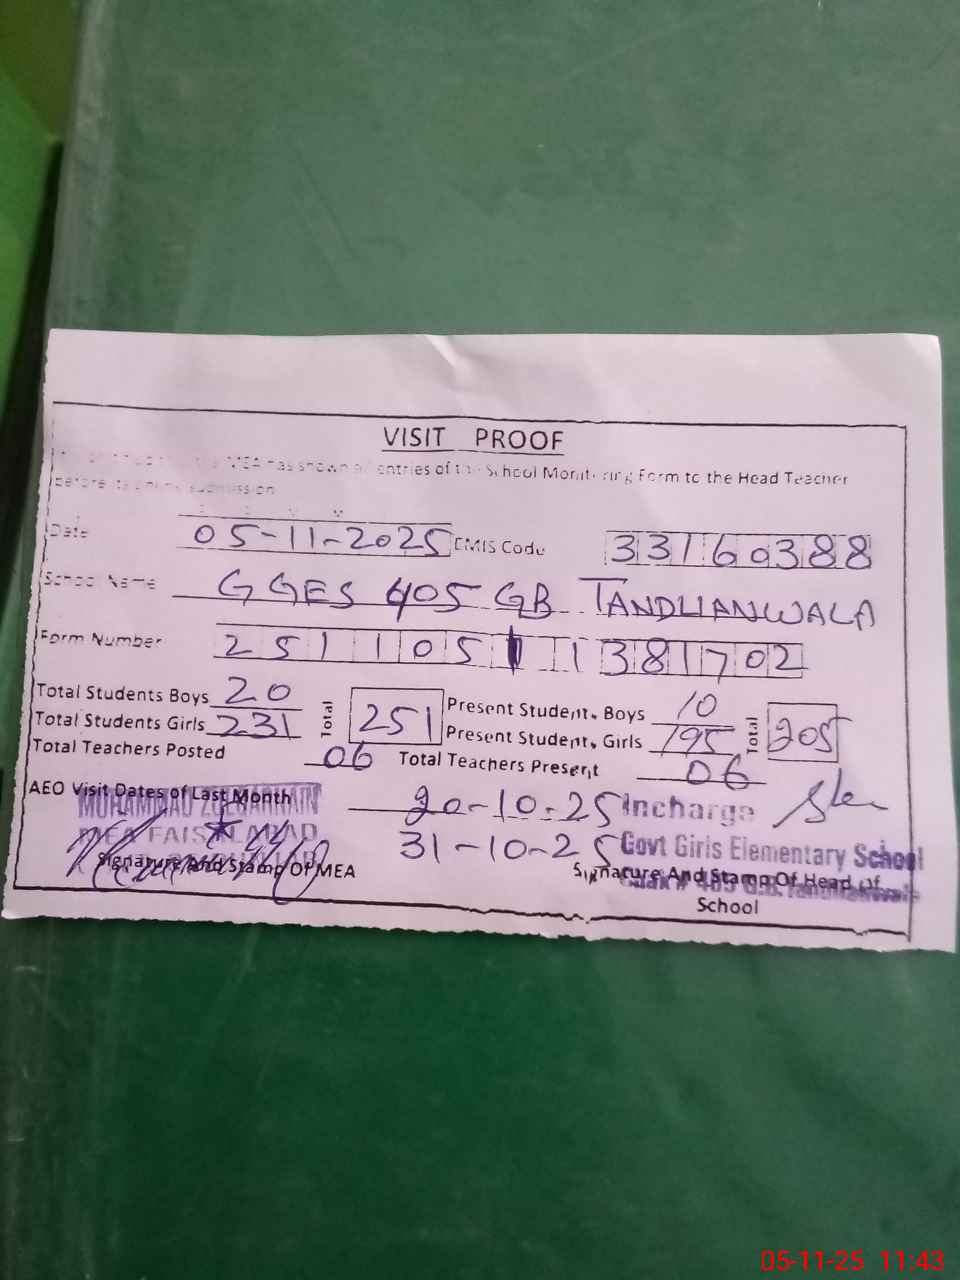 VISIT PROOF
MEA has shown all entries of the School Monitoring Form to the Head Teacher
before its online submission
Date 05-11-2025 EMIS Code 33160388
School Name GGES 405 GB TANDLIANWALA
Form Number 2511051 1381702
Total Students Boys 20 Total 251 Present Student, Boys 10 Total 205
Total Students Girls 231 Present Student, Girls 195
Total Teachers Posted 06 Total Teachers Present 06
AEO Visit Dates of Last Month 20-10-25 Incharge
MUHAMMAD ZULQARNAIN
MEA FAISALABAD 31-10-25 Govt Girls Elementary School
Signature And Stamp Of MEA Signature And Stamp Of Head of
School
Chak # 405 G.B. Tandlianwala
05-11-25 11:43